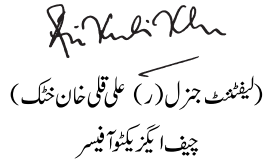 Ali Kuli Khan
(لیفٹننٹ جنرل (ر) علی قلی خان خٹک)
چیف ایگزیکٹو آفیسر